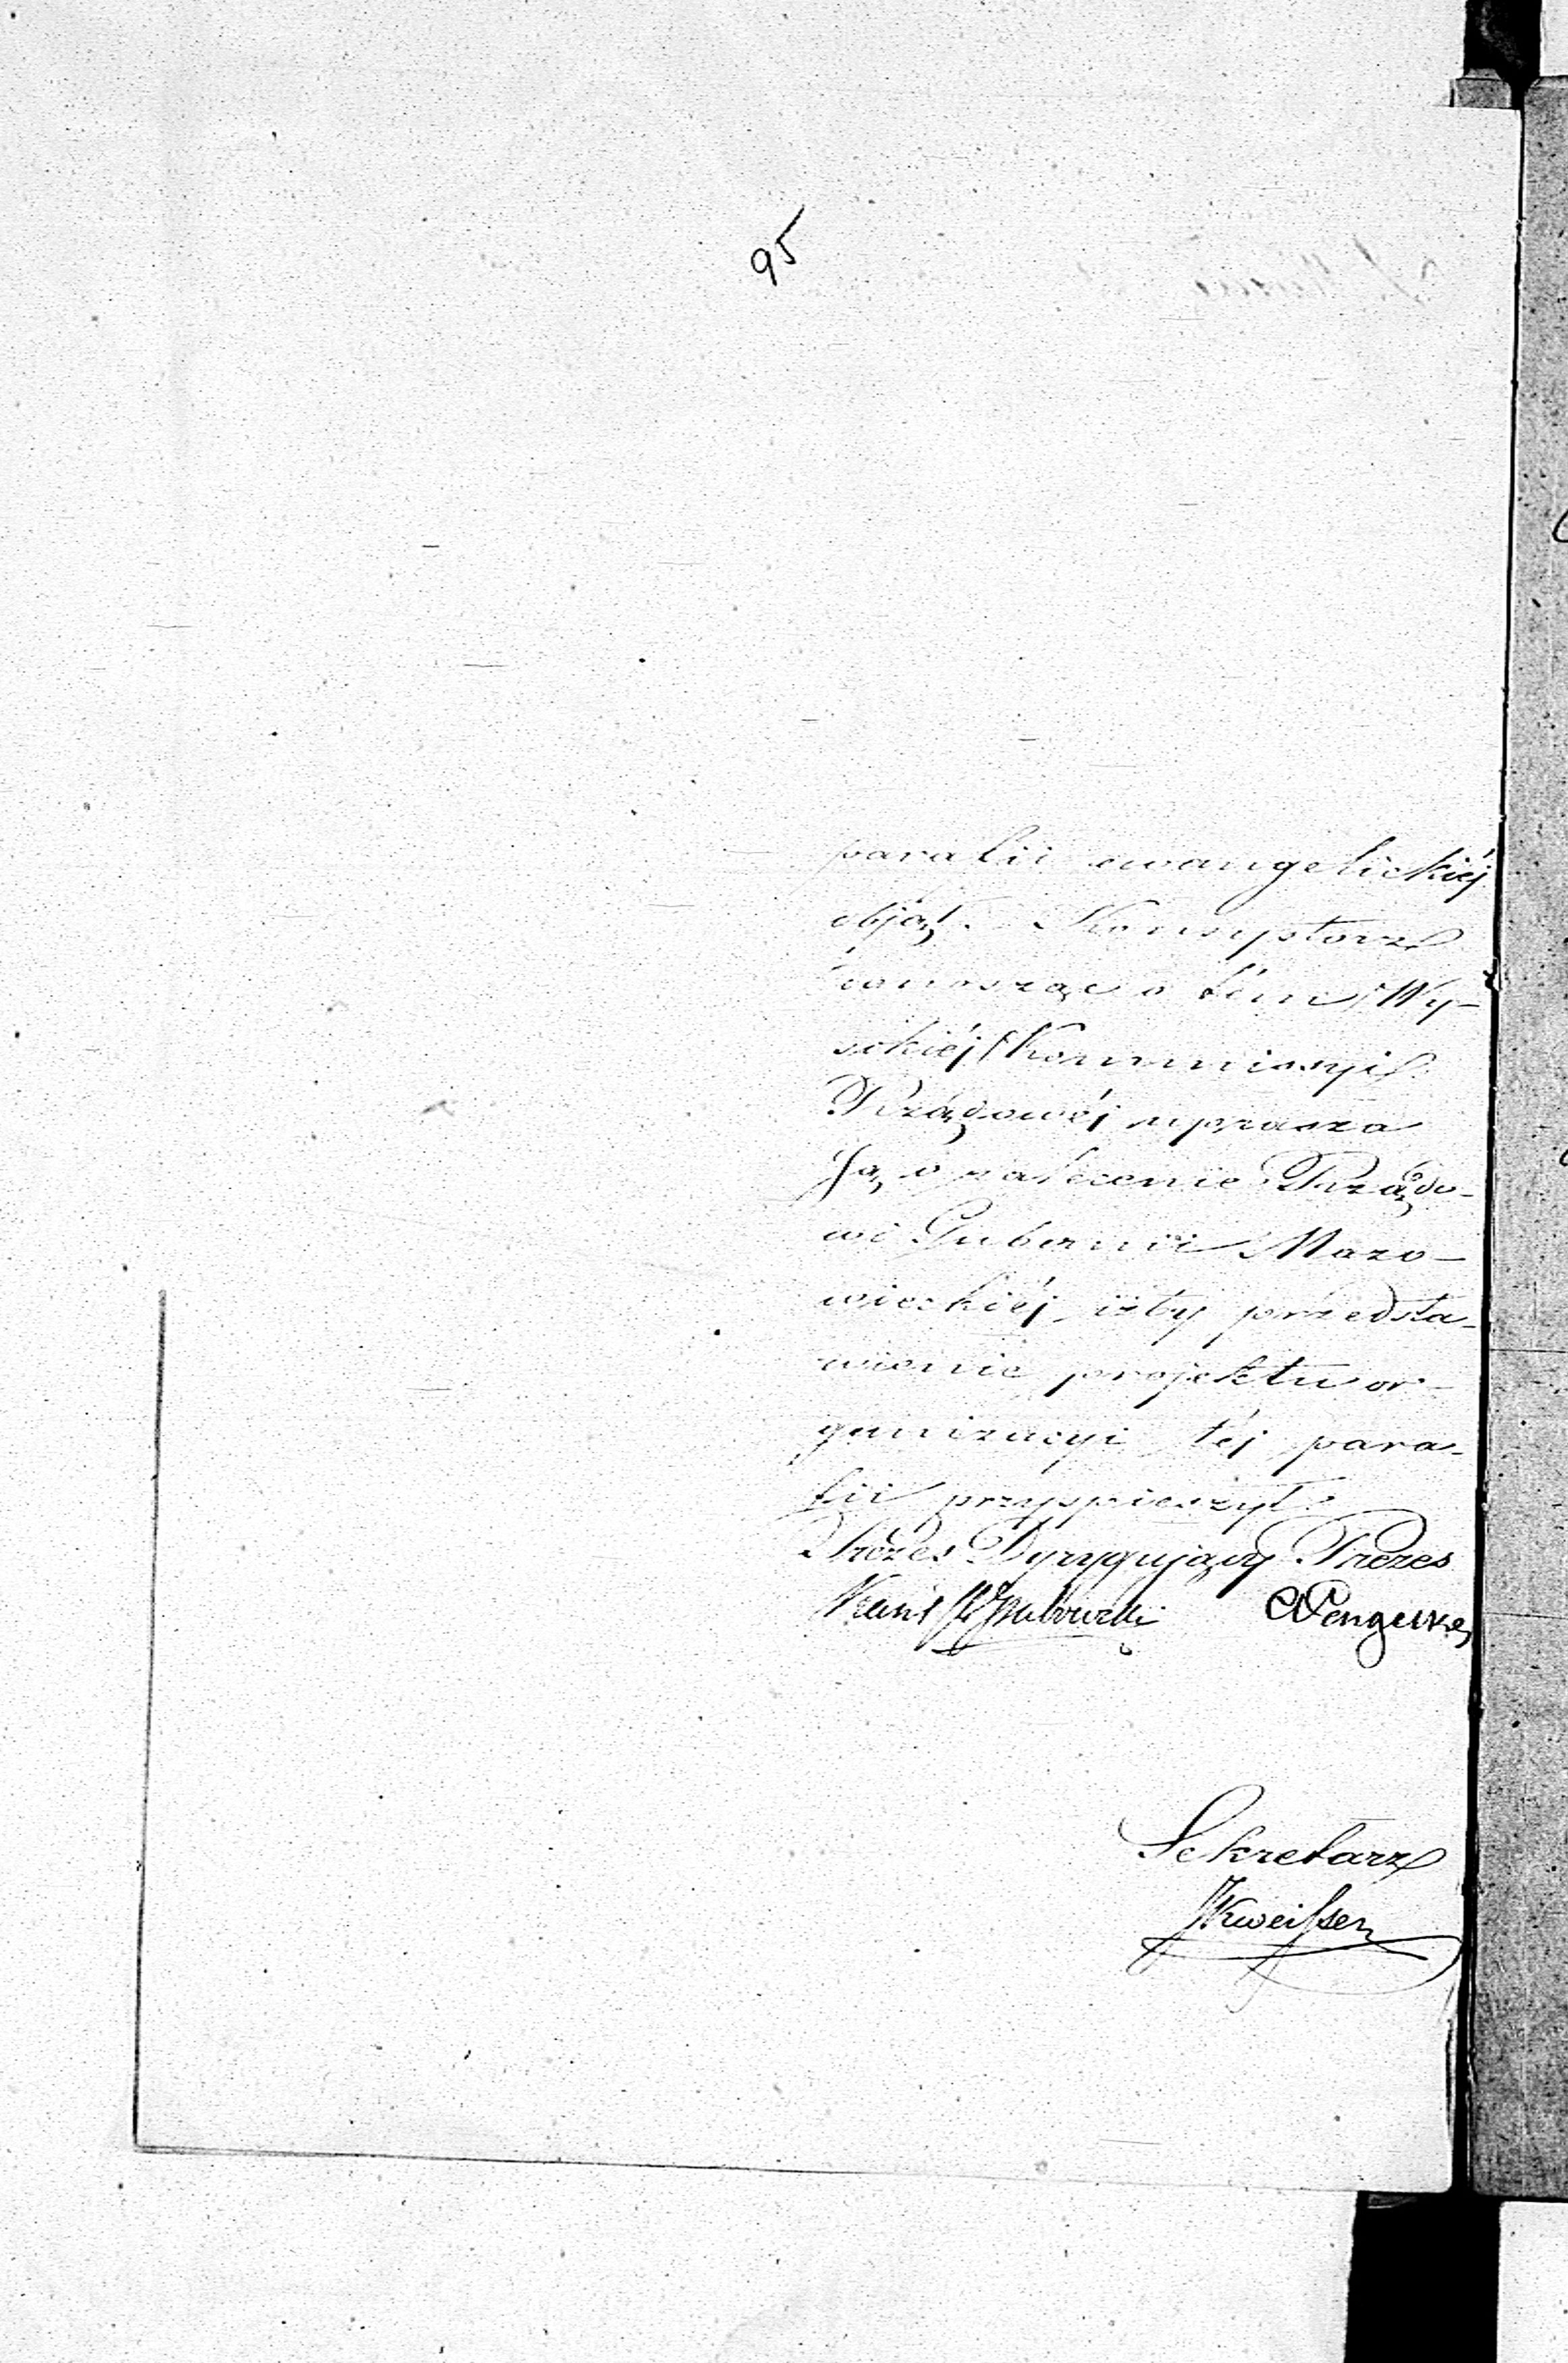 95
parafii ewangelickiéj
objął. Konsystorz
donosząc o tém Wy-
sokiéj Kommissyi
Rządowéj uprasza
Ją o zalecenie Rządo-
wi Gubernii Mazo-
wieckiéj, iżby przedsta-
wienie projektu or-
ganizacyi téj para-
fii przyspieszył.
Prezes Dyrygujący Prezes
Sekretarz